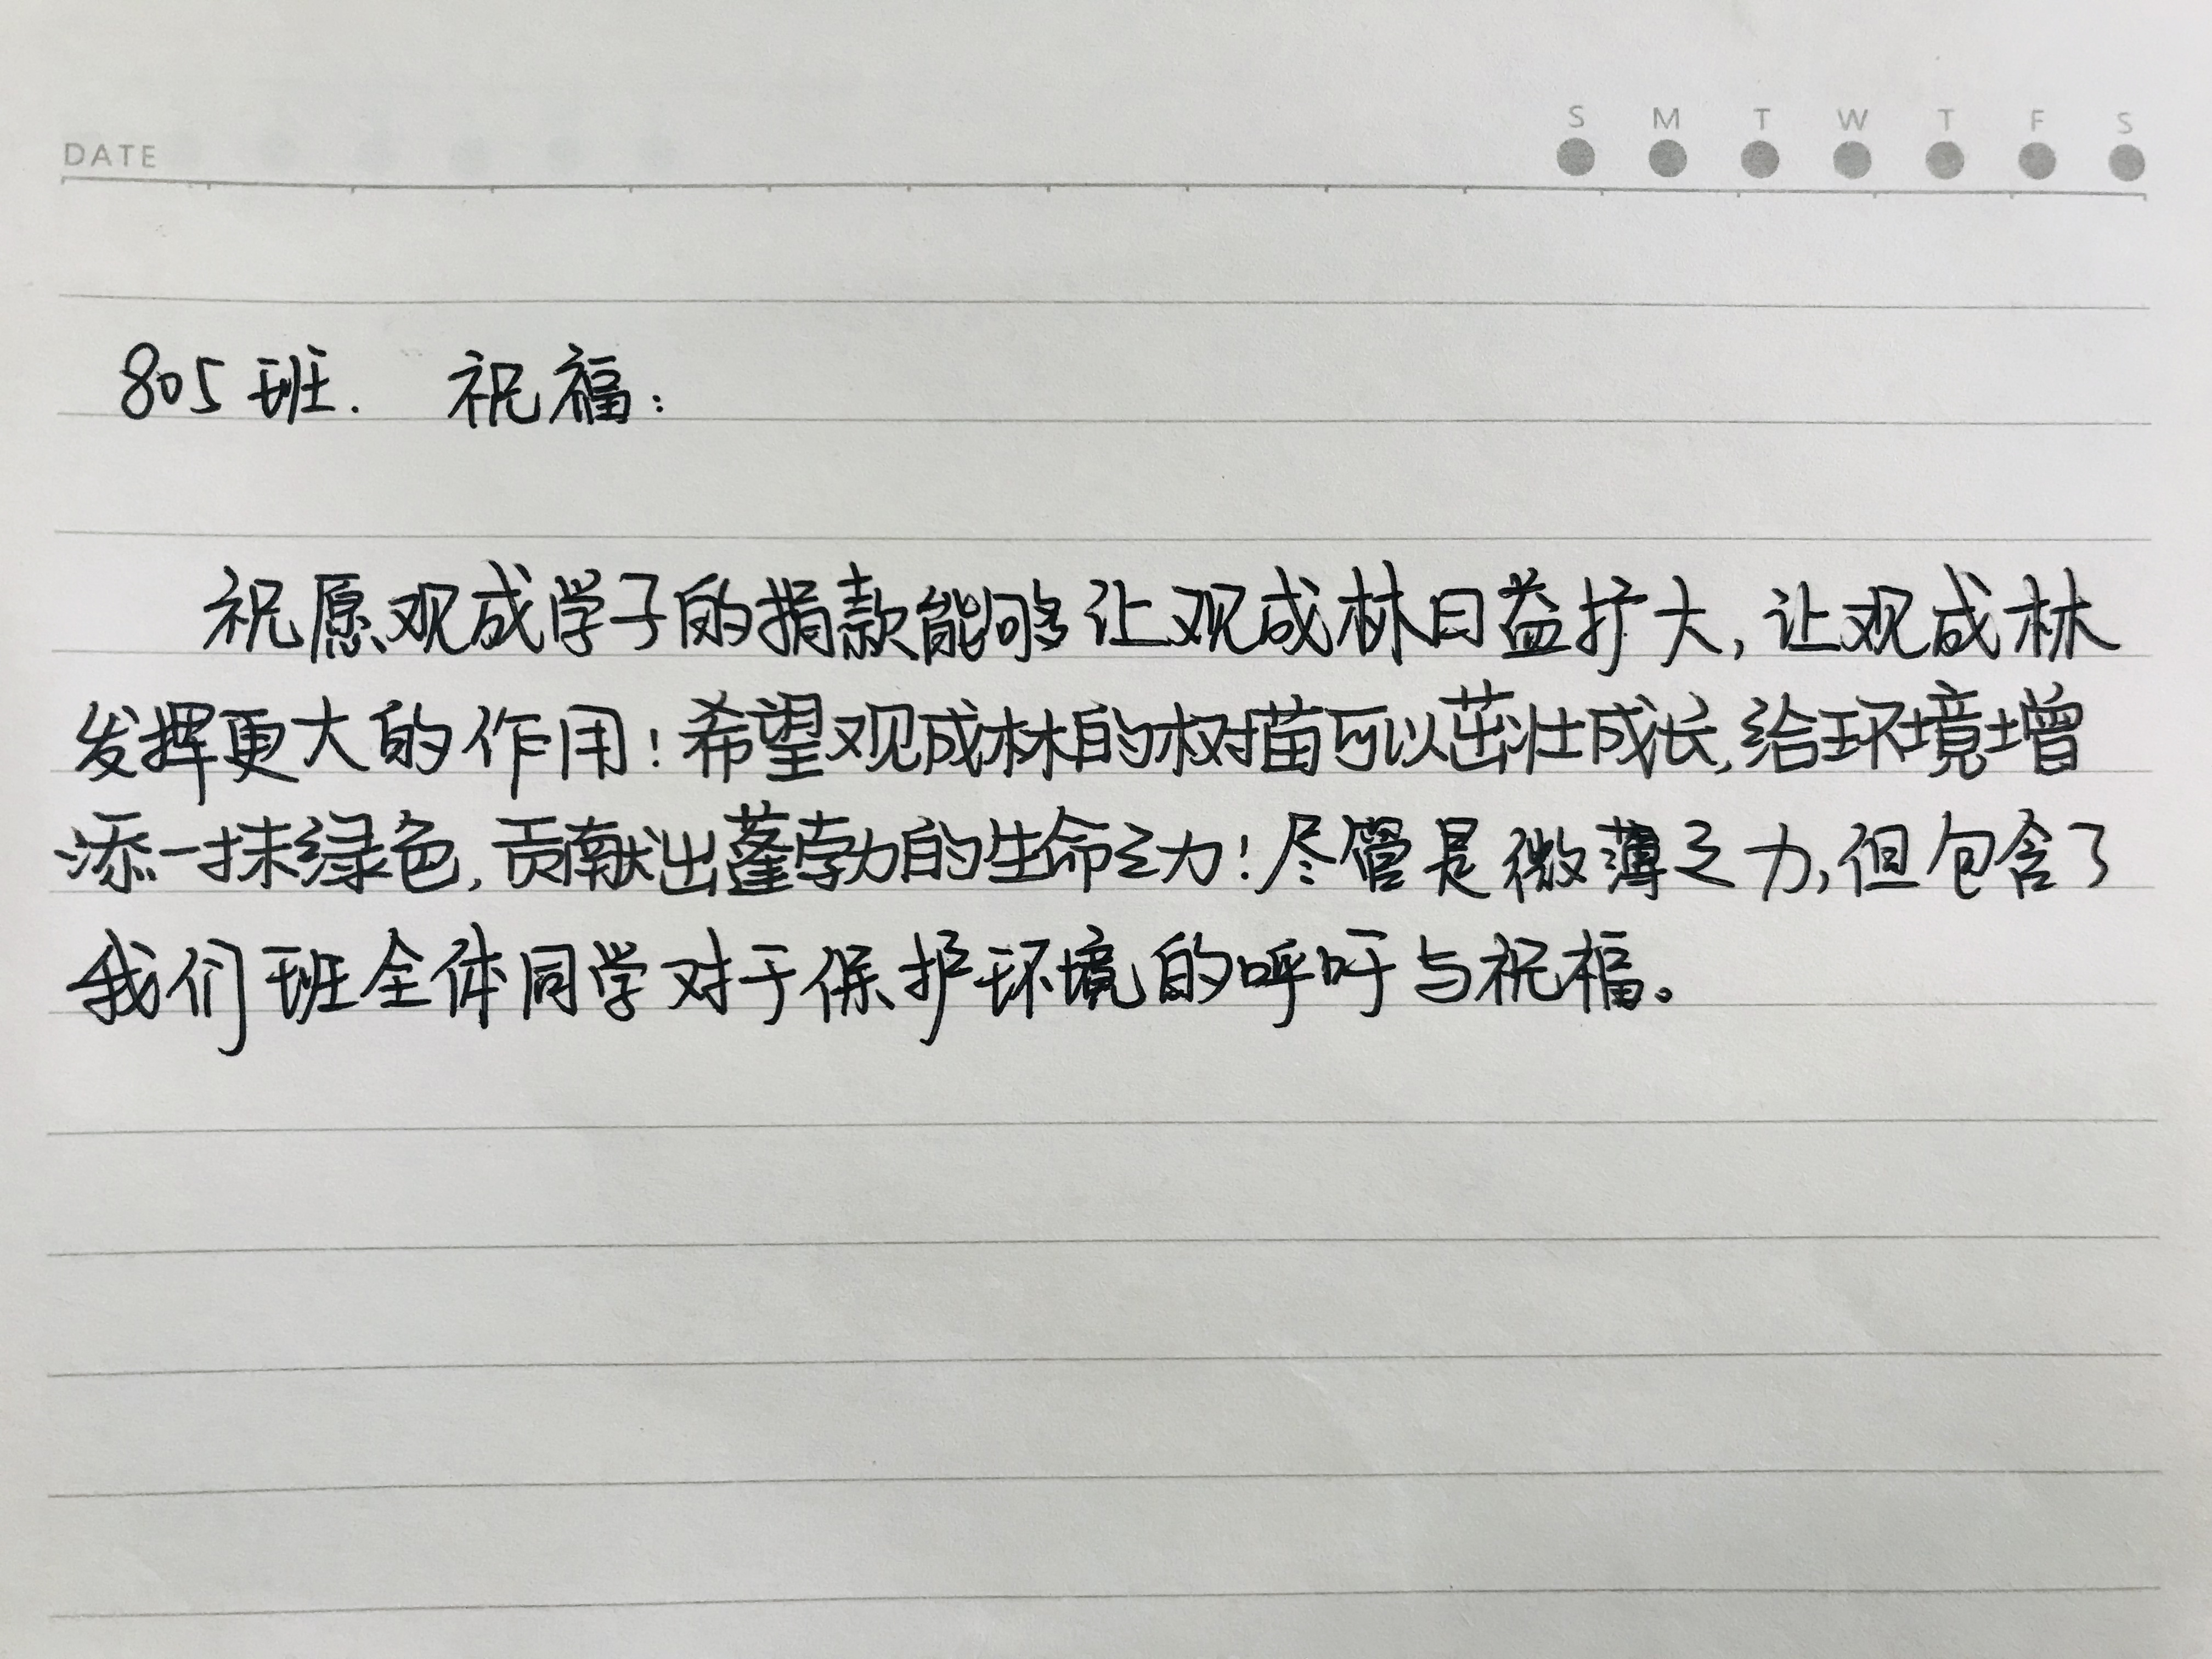 DATE S M T W T F S
805班. 祝福:
祝愿观成学子的捐款能够让观成林日益扩大,让观成林
发挥更大的作用!希望观成林的树苗可以茁壮成长,给环境增
添一抹绿色,贡献出蓬勃的生命之力!尽管是微薄之力,但包含了
我们班全体同学对于保护环境的呼吁与祝福。